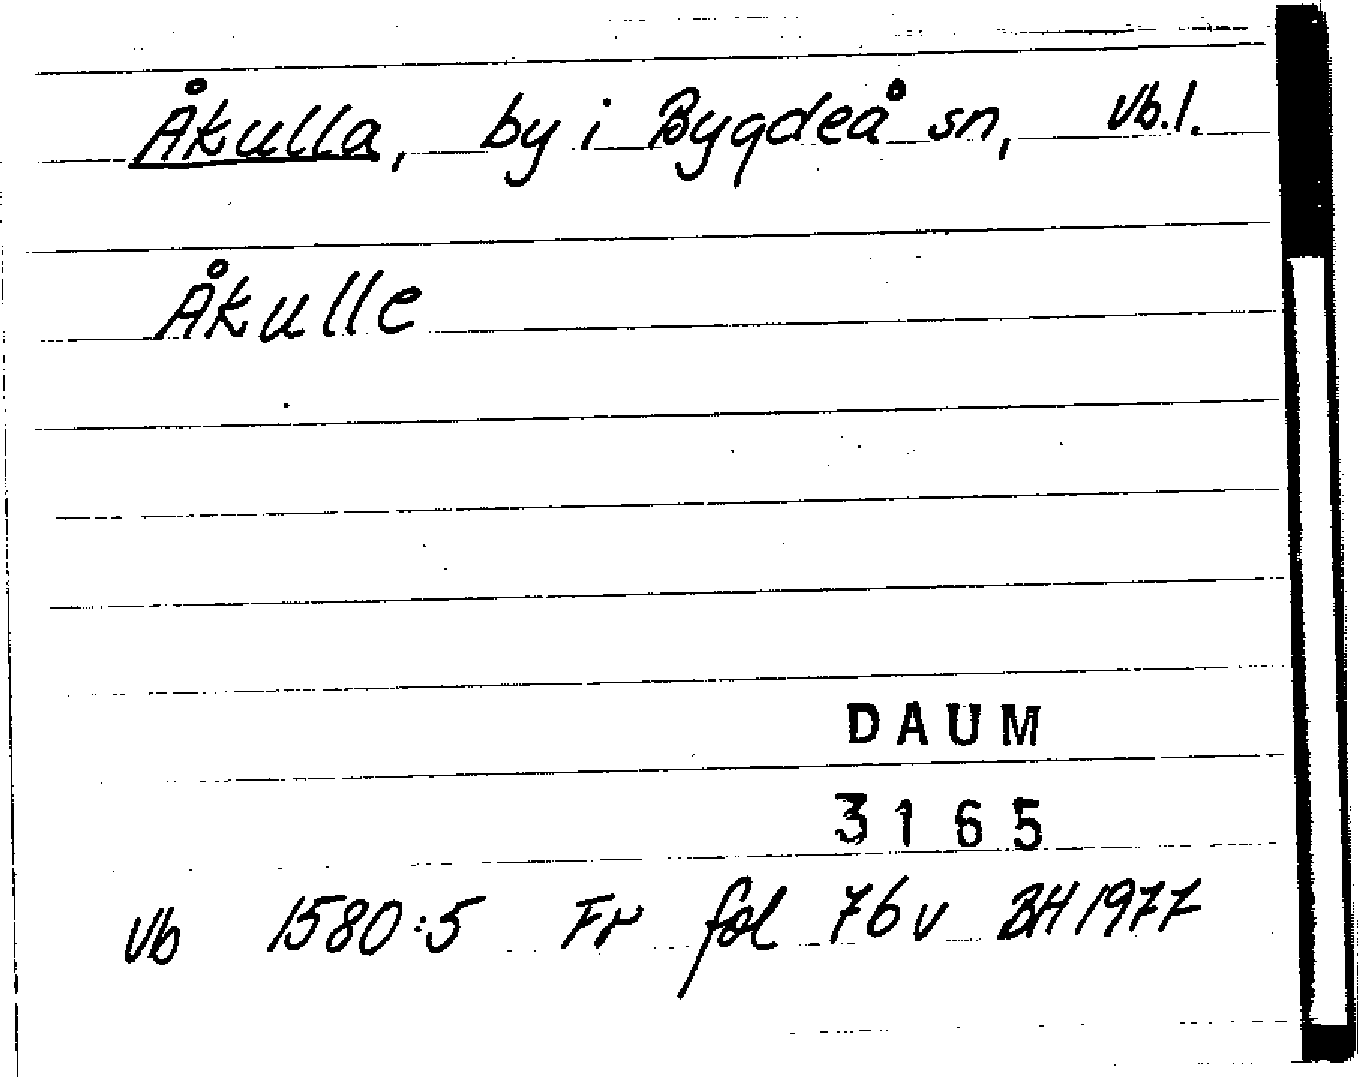 Åkulla, by i Bygdeå sn, Vb.l.
Åkulle
DAUM
3165
Vb 1580:5 Fr fol 76v BH 1977